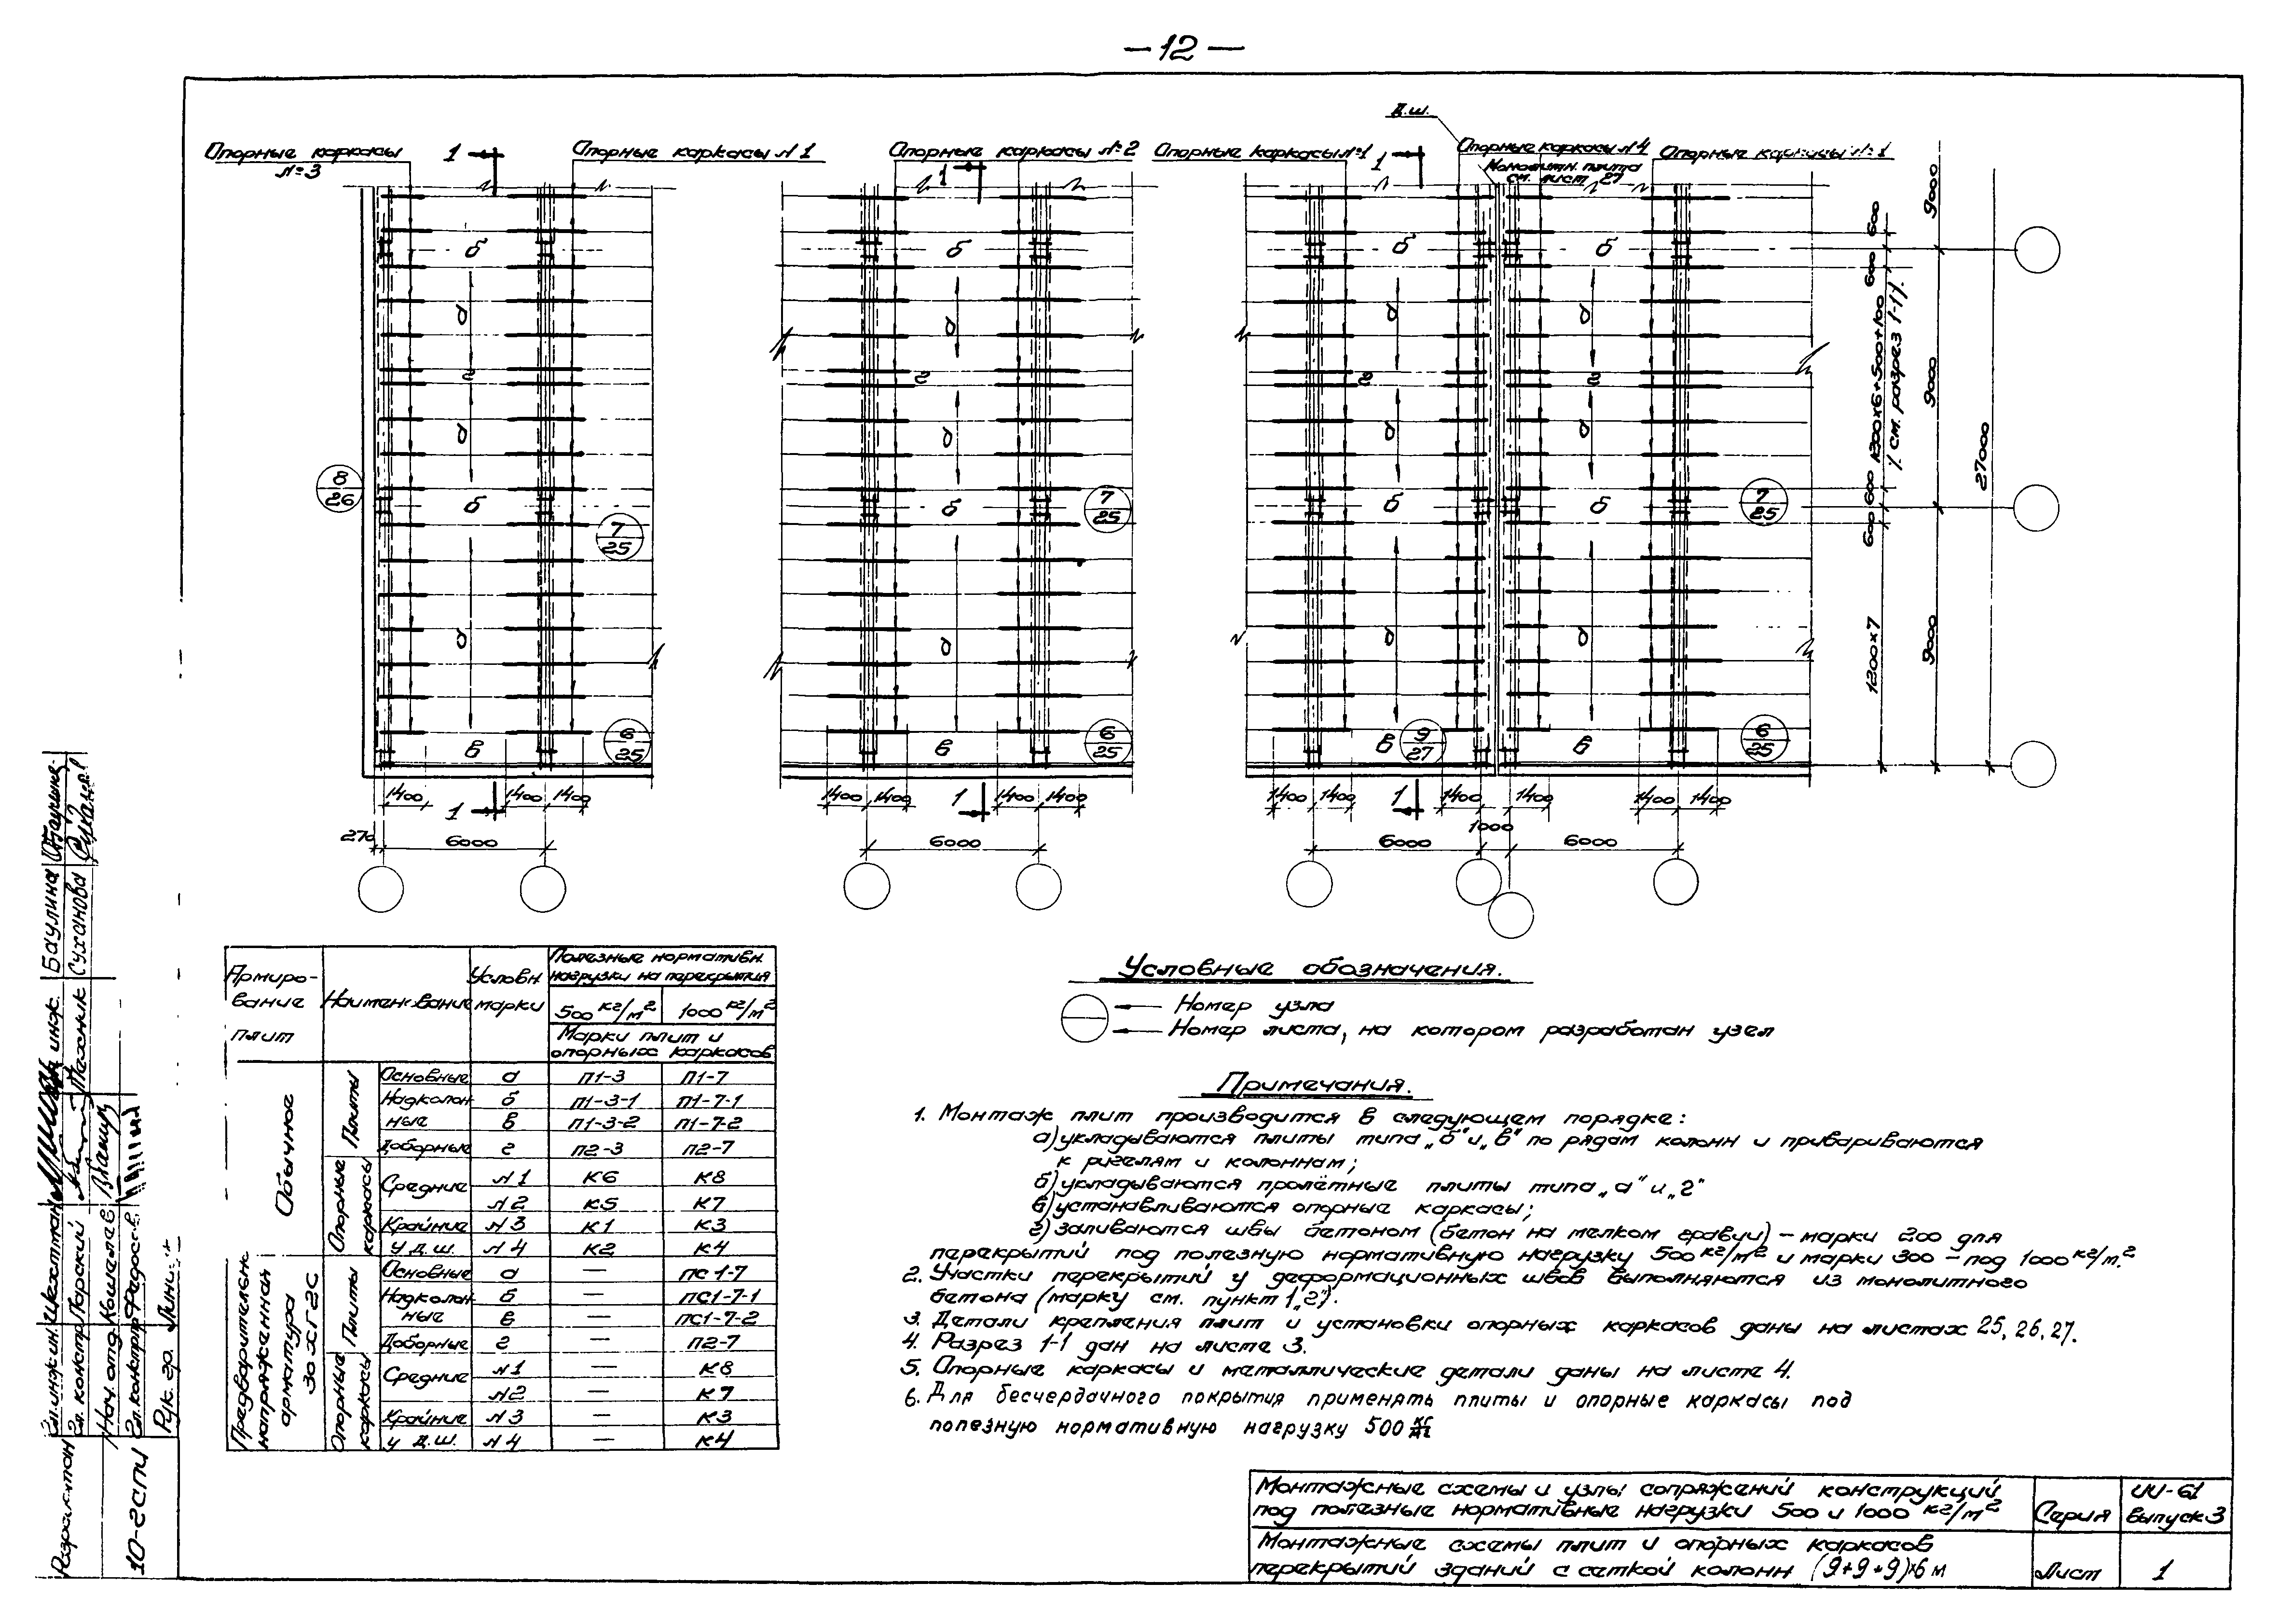 —12—
Д.ш.
Опорные каркасы
№3
1
Опорные каркасы №1
Опорные каркасы №2
1
Опорные каркасы №1
1
Опорные каркасы №4
Монолитн. плита
см. лист 27
Опорные каркасы №1
б б б б
а а а а
г г г г
а а а а
б б б б
а а а а
в в в в
8
26
7
25
7
25
7
25
6
25
6
25
9
27
6
25
600
600
1200×6+500+100
(см. разрез 1-1).
600
600
1200×7
9000
9000
9000
27000
1400 1 1400 1400
1400 1400 1 1400 1400
1400 1400 1 1400 1400 1400 1400
270 6000
6000
6000 1000 6000
Армиро-
вание
плит
Наименование
Условн.
марки
Полезные нормативн.
нагрузки на перекрытия
500 кг/м² 1000 кг/м²
Марки плит и
опорных каркасов
Обычное
Плиты
Основные а П1-3 П1-7
Надколон б П1-3-1 П1-7-1
ные в П1-3-2 П1-7-2
Доборные г П2-3 П2-7
Опорные
каркасы
Средние №1 К6 К8
№2 К5 К7
Крайние №3 К1 К3
У д.ш. №4 К2 К4
Предварительно
напряженная
арматура
30ХГ2С
Плиты
Основные а — ПС1-7
Надколон б — ПС1-7-1
ные в — ПС1-7-2
Доборные г — П2-7
Опорные
каркасы
Средние №1 — К8
№2 — К7
Крайние №3 — К3
У д.ш. №4 — К4
Условные обозначения.
Номер узла
Номер листа, на котором разработан узел
Примечания.
1. Монтаж плит производится в следующем порядке:
а) укладываются плиты типа „б" и „в" по рядам колонн и привариваются
к ригелям и колоннам;
б) укладываются пролётные плиты типа „а" и „г"
в) устанавливаются опорные каркасы;
г) заливаются швы бетоном (бетон на мелком гравии) — марки 200 для
перекрытий под полезную нормативную нагрузку 500 кг/м² и марки 300 — под 1000 кг/м².
2. Участки перекрытий у деформационных швов выполняются из монолитного
бетона (марку см. пункт 1„г").
3. Детали крепления плит и установки опорных каркасов даны на листах 25, 26, 27.
4. Разрез 1-1 дан на листе 3.
5. Опорные каркасы и металлические детали даны на листе 4.
6. Для бесчердачного покрытия применять плиты и опорные каркасы под
полезную нормативную нагрузку 500 кг/м²
Монтажные схемы и узлы сопряжений конструкций
под полезные нормативные нагрузки 500 и 1000 кг/м²
Серия
ИИ-61
Выпуск 3
Монтажные схемы плит и опорных каркасов
перекрытий зданий с сеткой колонн (9+9+9)×6 м
Лист
1
Гл. инж. ин. Шахтман
Гл. констр. Парский
Нач. отд. Кошелев
Гл. констр.
Рук. гр.
инж. Баулина
Техник Суханова
10-ГСПИ